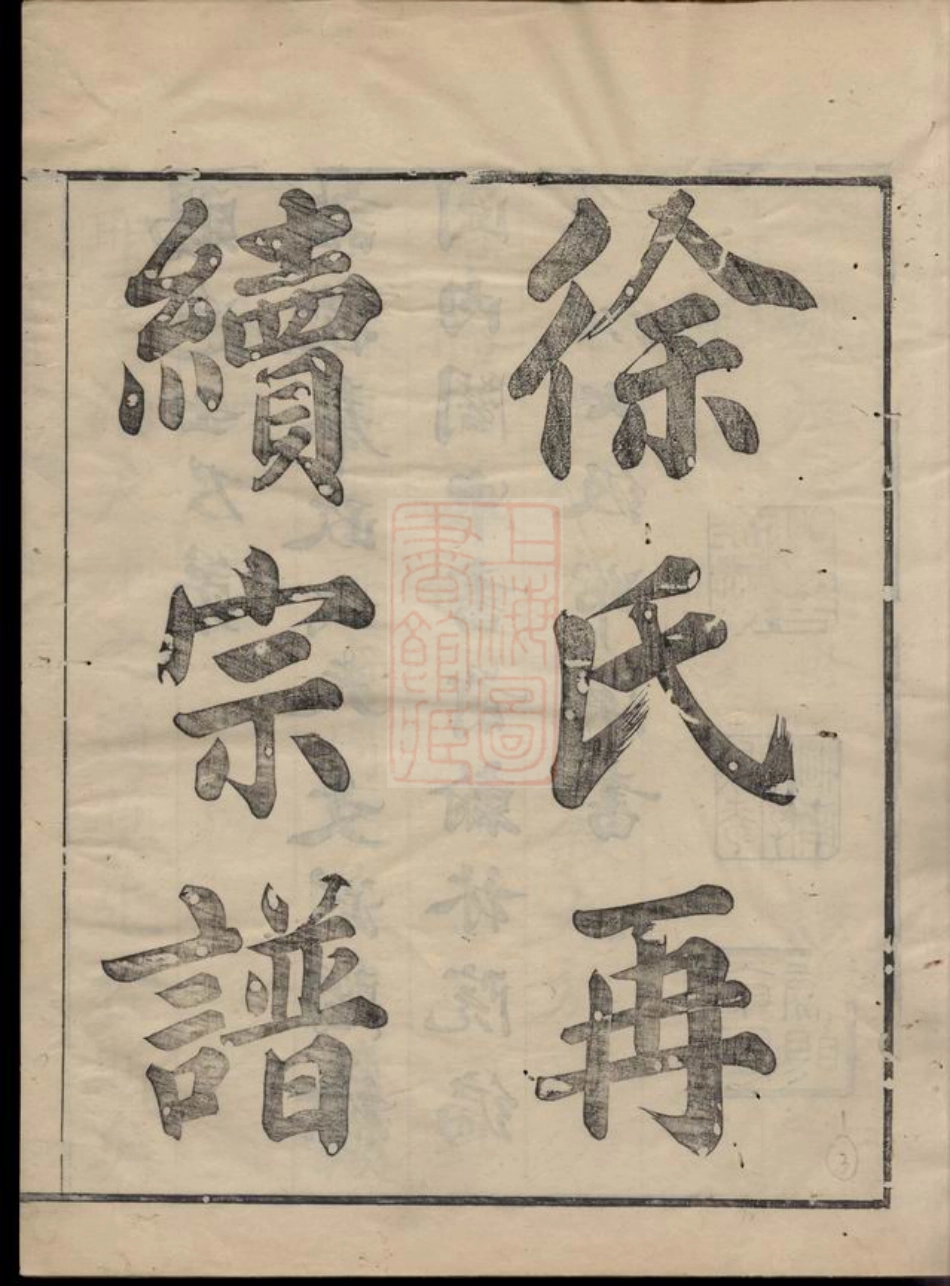 徐氏再
續宗譜
上海圖
書館藏
3